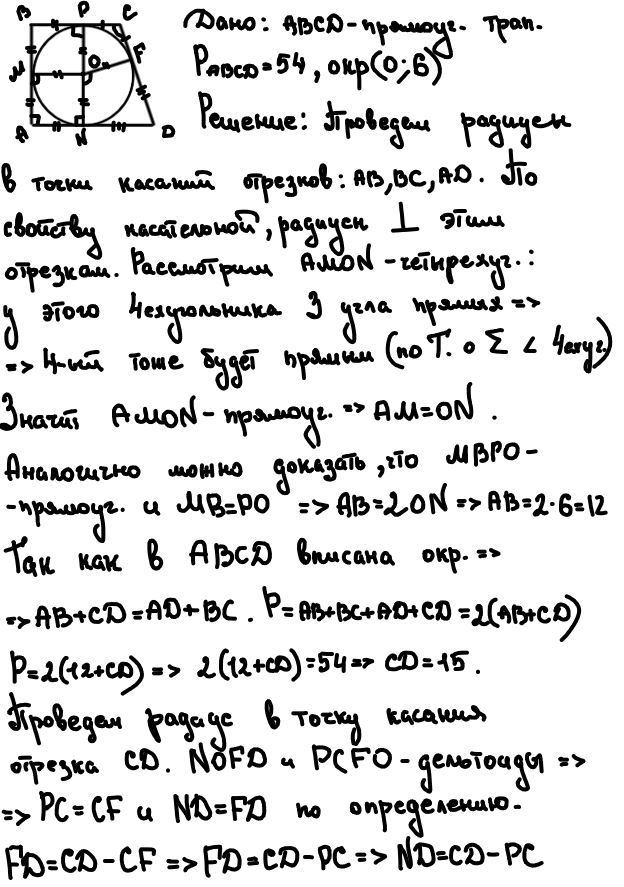 B P C
Дано: ABCD-прямоуг. трап.
F
M O
P ABCD=54, окр(O;6)
A N D
Решение: Проведем радиусы
в точки касаний отрезков: AB,BC,AD. По
свойству касательной, радиусы ⊥ этим
отрезкам. Рассмотрим AMON-четырехуг.:
у этого 4ехугольника 3 угла прямых =>
=> 4-ый тоже будет прямым (по Т. о Σ ∠ 4ехуг.)
Значит AMON-прямоуг. => AM=ON.
Аналогично можно доказать, что MBPO-
-прямоуг. и MB=PO => AB=2ON => AB=2·6=12
Так как в ABCD вписана окр. =>
=> AB+CD=AD+BC. P=AB+BC+AD+CD=2(AB+CD)
P=2(12+CD) => 2(12+CD)=54 => CD=15.
Проведем радиус в точку касания
отрезка CD. NOFD и PCFO-дельтоиды =>
=> PC=CF и ND=FD по определению.
FD=CD-CF => FD=CD-PC => ND=CD-PC